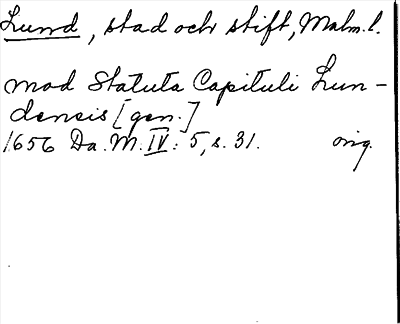 Lund, stad och stift, Malm.l.
mod Statuta Capituli Lun-
densis [gen.]
1656 Da. M. IV: 5, s. 31. orig.